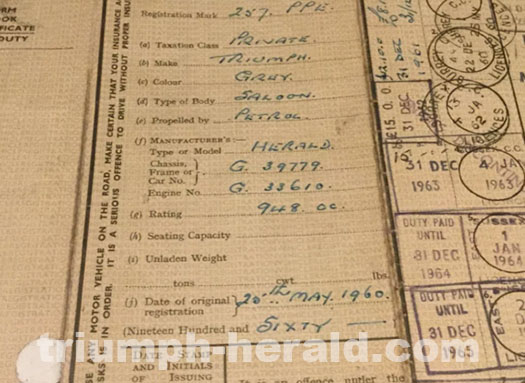 RM
OK
IFICATE
DUTY
SE ANY MOTOR VEHICLE ON THE ROAD, MAKE CERTAIN THAT YOUR INSURANCE
SKS IS IN ORDER. IT IS A SERIOUS OFFENCE TO DRIVE WITHOUT PROPER
Registration Mark 257. PPE.
(a) Taxation Class PRIVATE.
(b) Make TRIUMPH.
(c) Colour GREY.
(d) Type of Body SALOON.
(e) Propelled by PETROL.
(f) MANUFACTURER'S—
Type or Model HERALD.
Chassis, Frame or Car No. G. 39779.
Engine No. G. 33610.
(g) Rating 948. CC.
(h) Seating Capacity
(i) Unladen Weight
tons cwt. lbs.
(j) Date of original registration 20th MAY. 1960.
(Nineteen Hundred and SIXTY —
DATE STAMP
AND INITIALS
OF ISSUING
It is an offence under the
31 DEC
1961
£15. 0. 0
31 DEC
31 DEC
1963
4 JA
1963
DUTY PAID
UNTIL
31 DEC
1964
1
JAN
1964
DUTY PAID
UNTIL
31 DEC
1965
triumph-herald.com